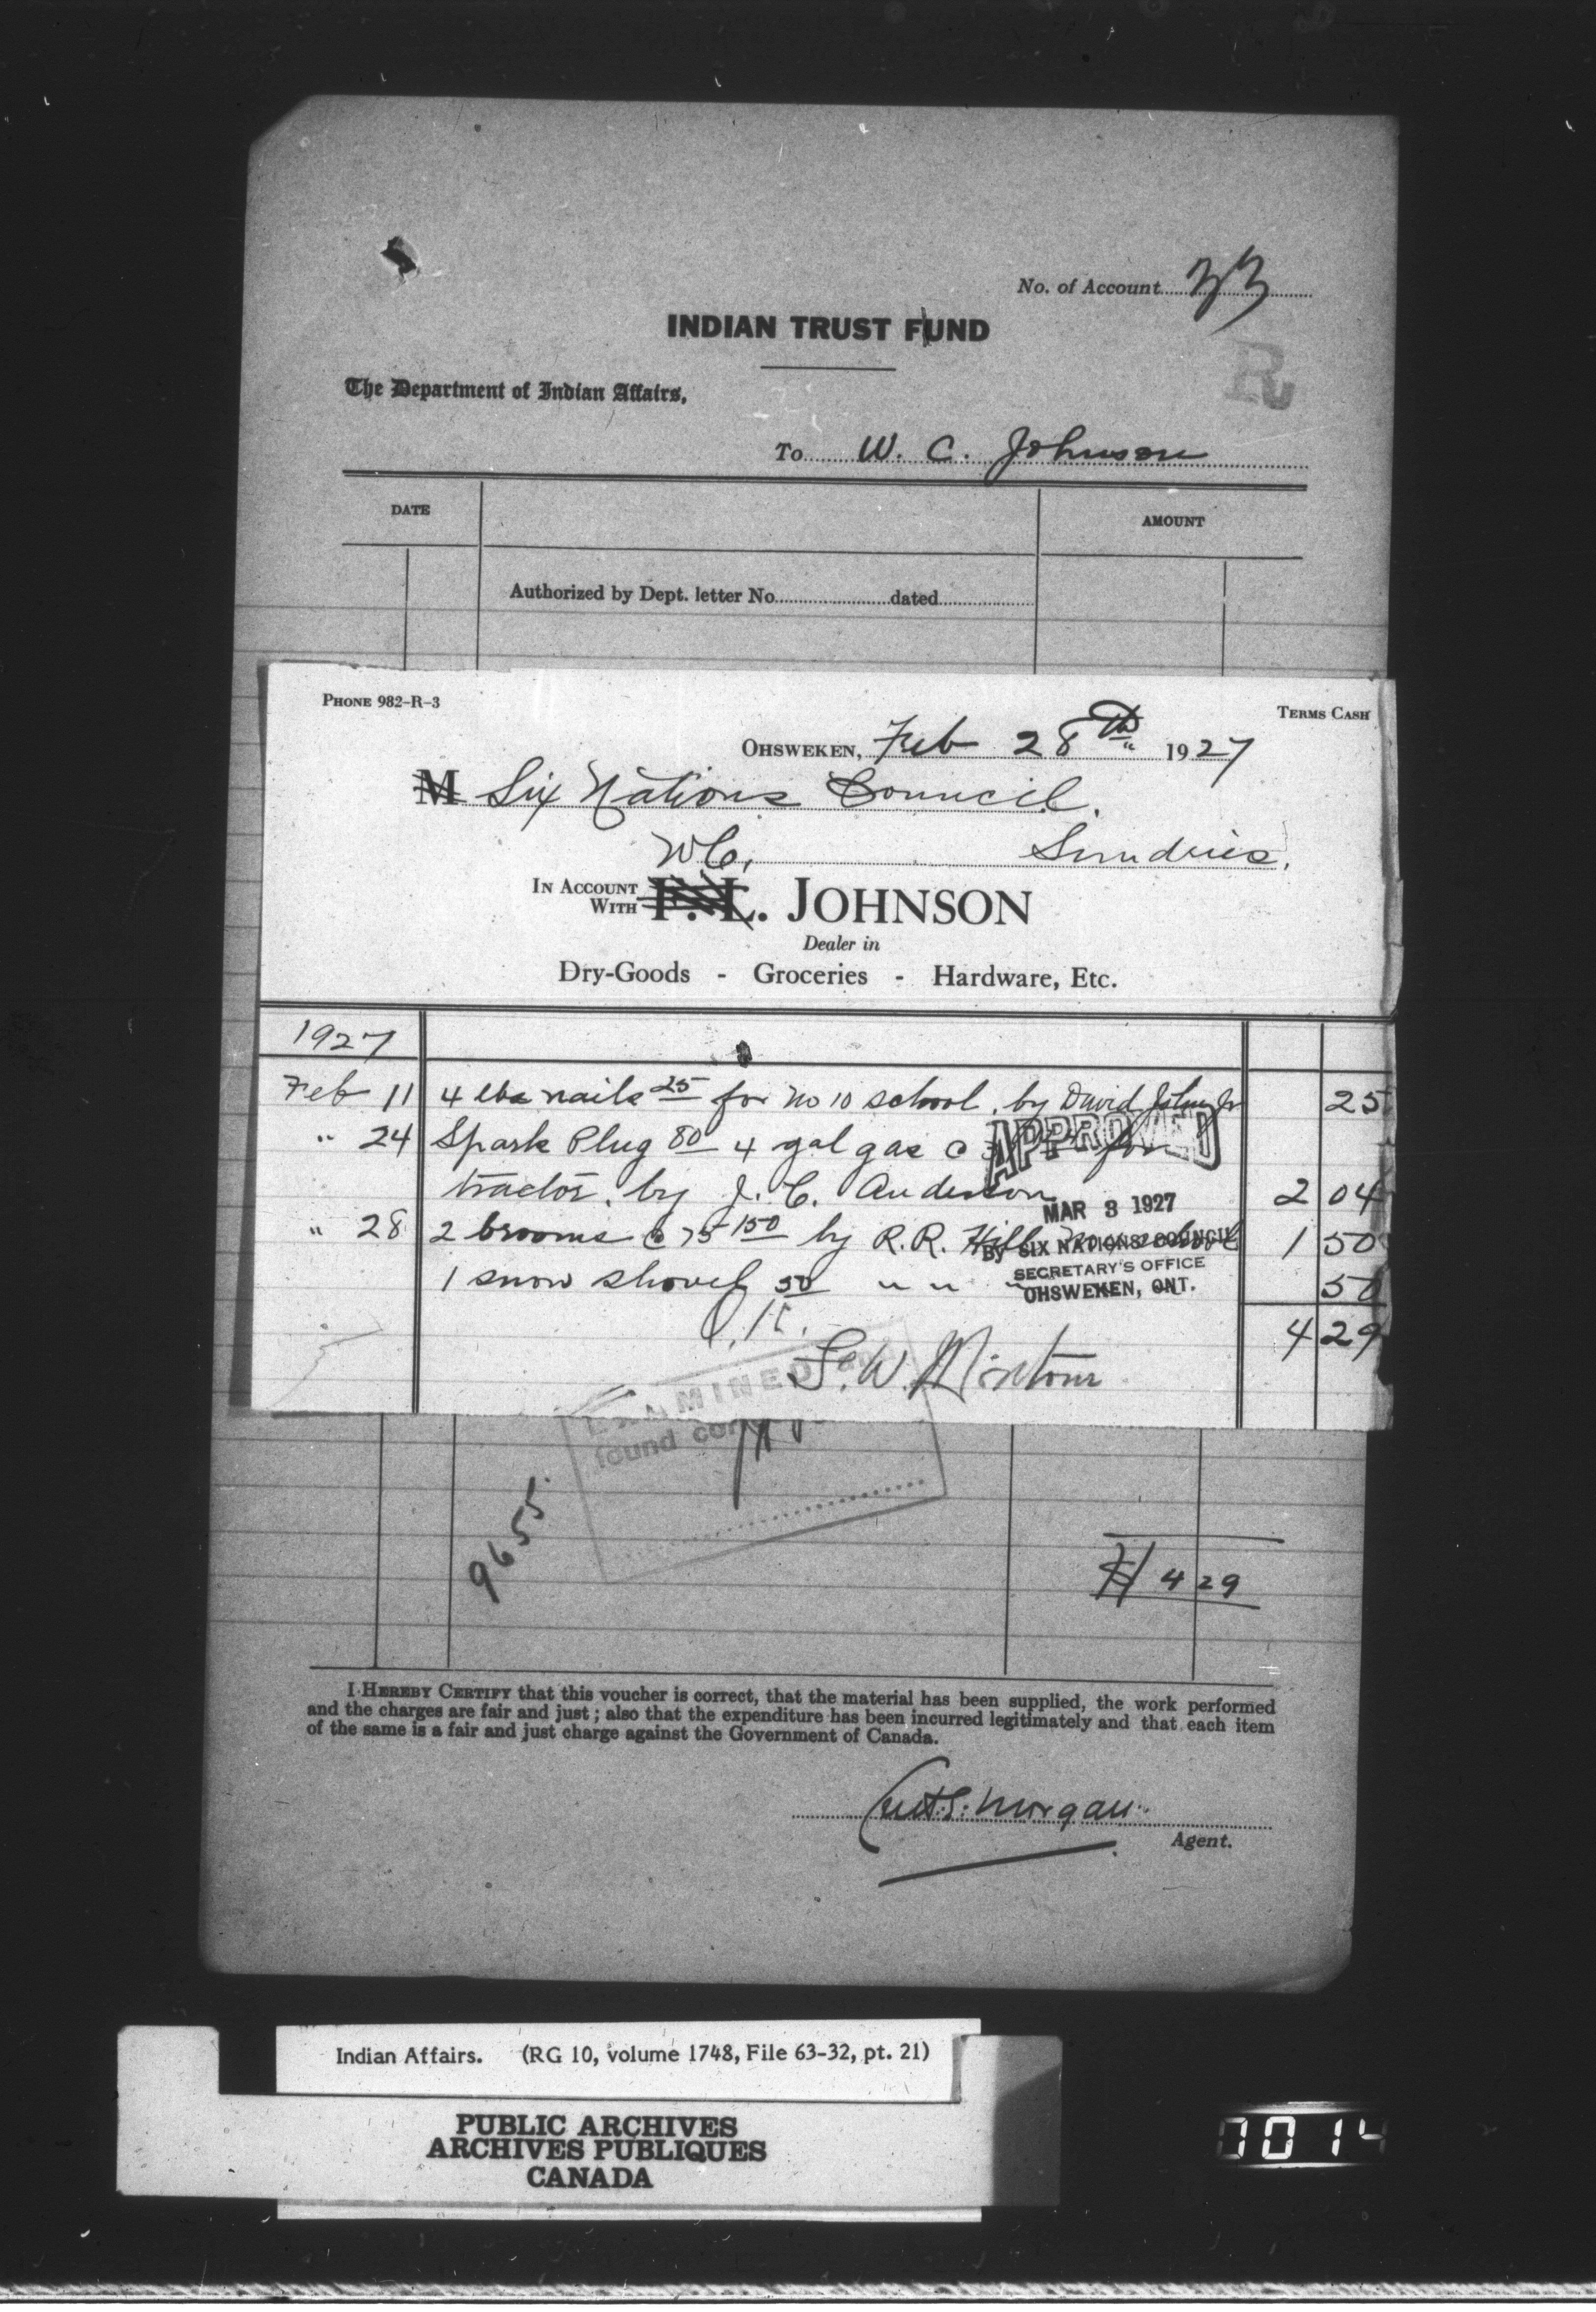 No. of Account 33
INDIAN TRUST FUND
R
The Department of Indian Affairs,
To W. C. Johnson
DATE AMOUNT
Authorized by Dept. letter No. dated
PHONE 982-R-3 TERMS CASH
OHSWEKEN, Feb 28th 1927
M Six Nations Council.
WC. Sundries,
IN ACCOUNT WITH F. L. JOHNSON
Dealer in
Dry-Goods - Groceries - Hardware, Etc.
1927
Feb 11 4 lbs nails 25 for No 10 school, by David John Jr 25
" 24 Spark Plug 80 4 gal gas @ for
tractor, by J. C. Anderson 2 04
" 28 2 brooms @ 75 150 by R. R. Hill 1 50
1 snow shovel 50 " " " 50
4 29
APPROVED
MAR 3 1927
BY SIX NATIONS COUNCIL
SECRETARY'S OFFICE
OHSWEKEN, ONT.
O.K.
EXAMINED and
found
9655
4 29
I HEREBY CERTIFY that this voucher is correct, that the material has been supplied, the work performed
and the charges are fair and just; also that the expenditure has been incurred legitimately and that each item
of the same is a fair and just charge against the Government of Canada.
Morgan
Agent.
Indian Affairs. (RG 10, volume 1748, File 63-32, pt. 21)
PUBLIC ARCHIVES
ARCHIVES PUBLIQUES
CANADA
0014